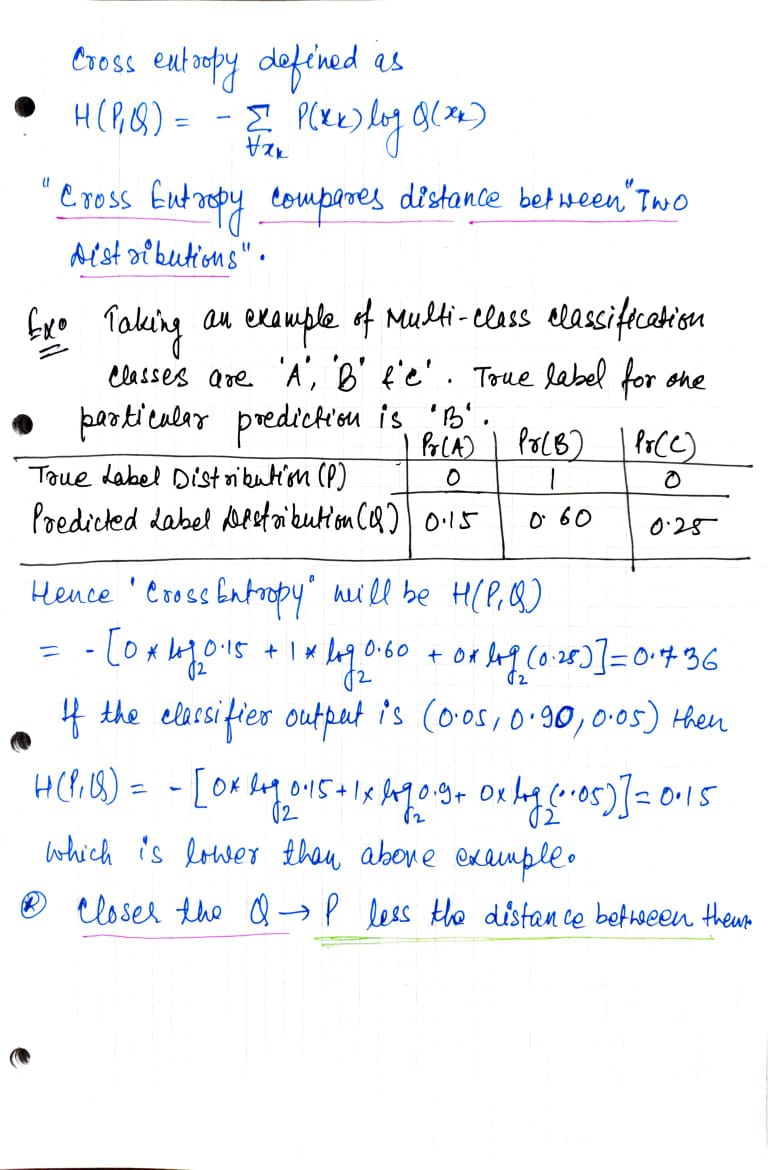 Cross entropy defined as
H(P,Q) = - Σ P(xk) log Q(xk)
∀xk
"Cross Entropy compares distance between" Two
Distributions".
Ex: Taking an example of Multi-class classification
classes are 'A', 'B' & 'C'. True label for one
particular prediction is 'B'.
Pr(A) Pr(B) Pr(C)
True Label Distribution (P) 0 1 0
Predicted Label Distribution (Q) 0.15 0.60 0.25
Hence 'Cross Entropy" will be H(P,Q)
= - [0 * log₂ 0.15 + 1 * log₂ 0.60 + 0 * log₂ (0.25)] = 0.736
If the classifier output is (0.05, 0.90, 0.05) then
H(P,Q) = - [0 x log₂ 0.15 + 1 x log₂ 0.9 + 0 x log₂ (0.05)] = 0.15
which is lower than above example.
Closer the Q → P less the distance between them